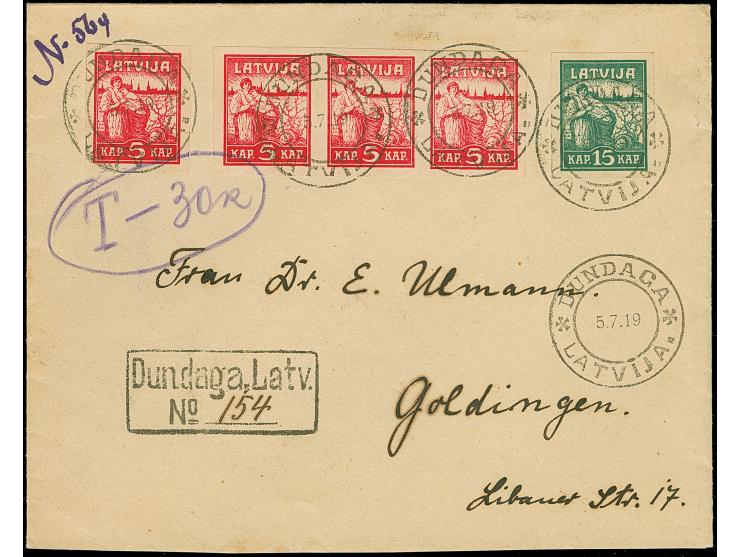 N. 564
LATVIJA LATVIJA LATVIJA LATVIJA LATVIJA
KAP. 5 KAP. KAP. 5 KAP. KAP. 5 KAP. KAP. 5 KAP. KAP. 15 KAP.
DUNDAGA
5.7.19
LATVIJA.
T-30K
Frau Dr. E. Ulmann.
DUNDAGA
5.7.19
LATVIJA.
Dundaga, Latv.
No 154
Goldingen.
Libauer Str. 17.